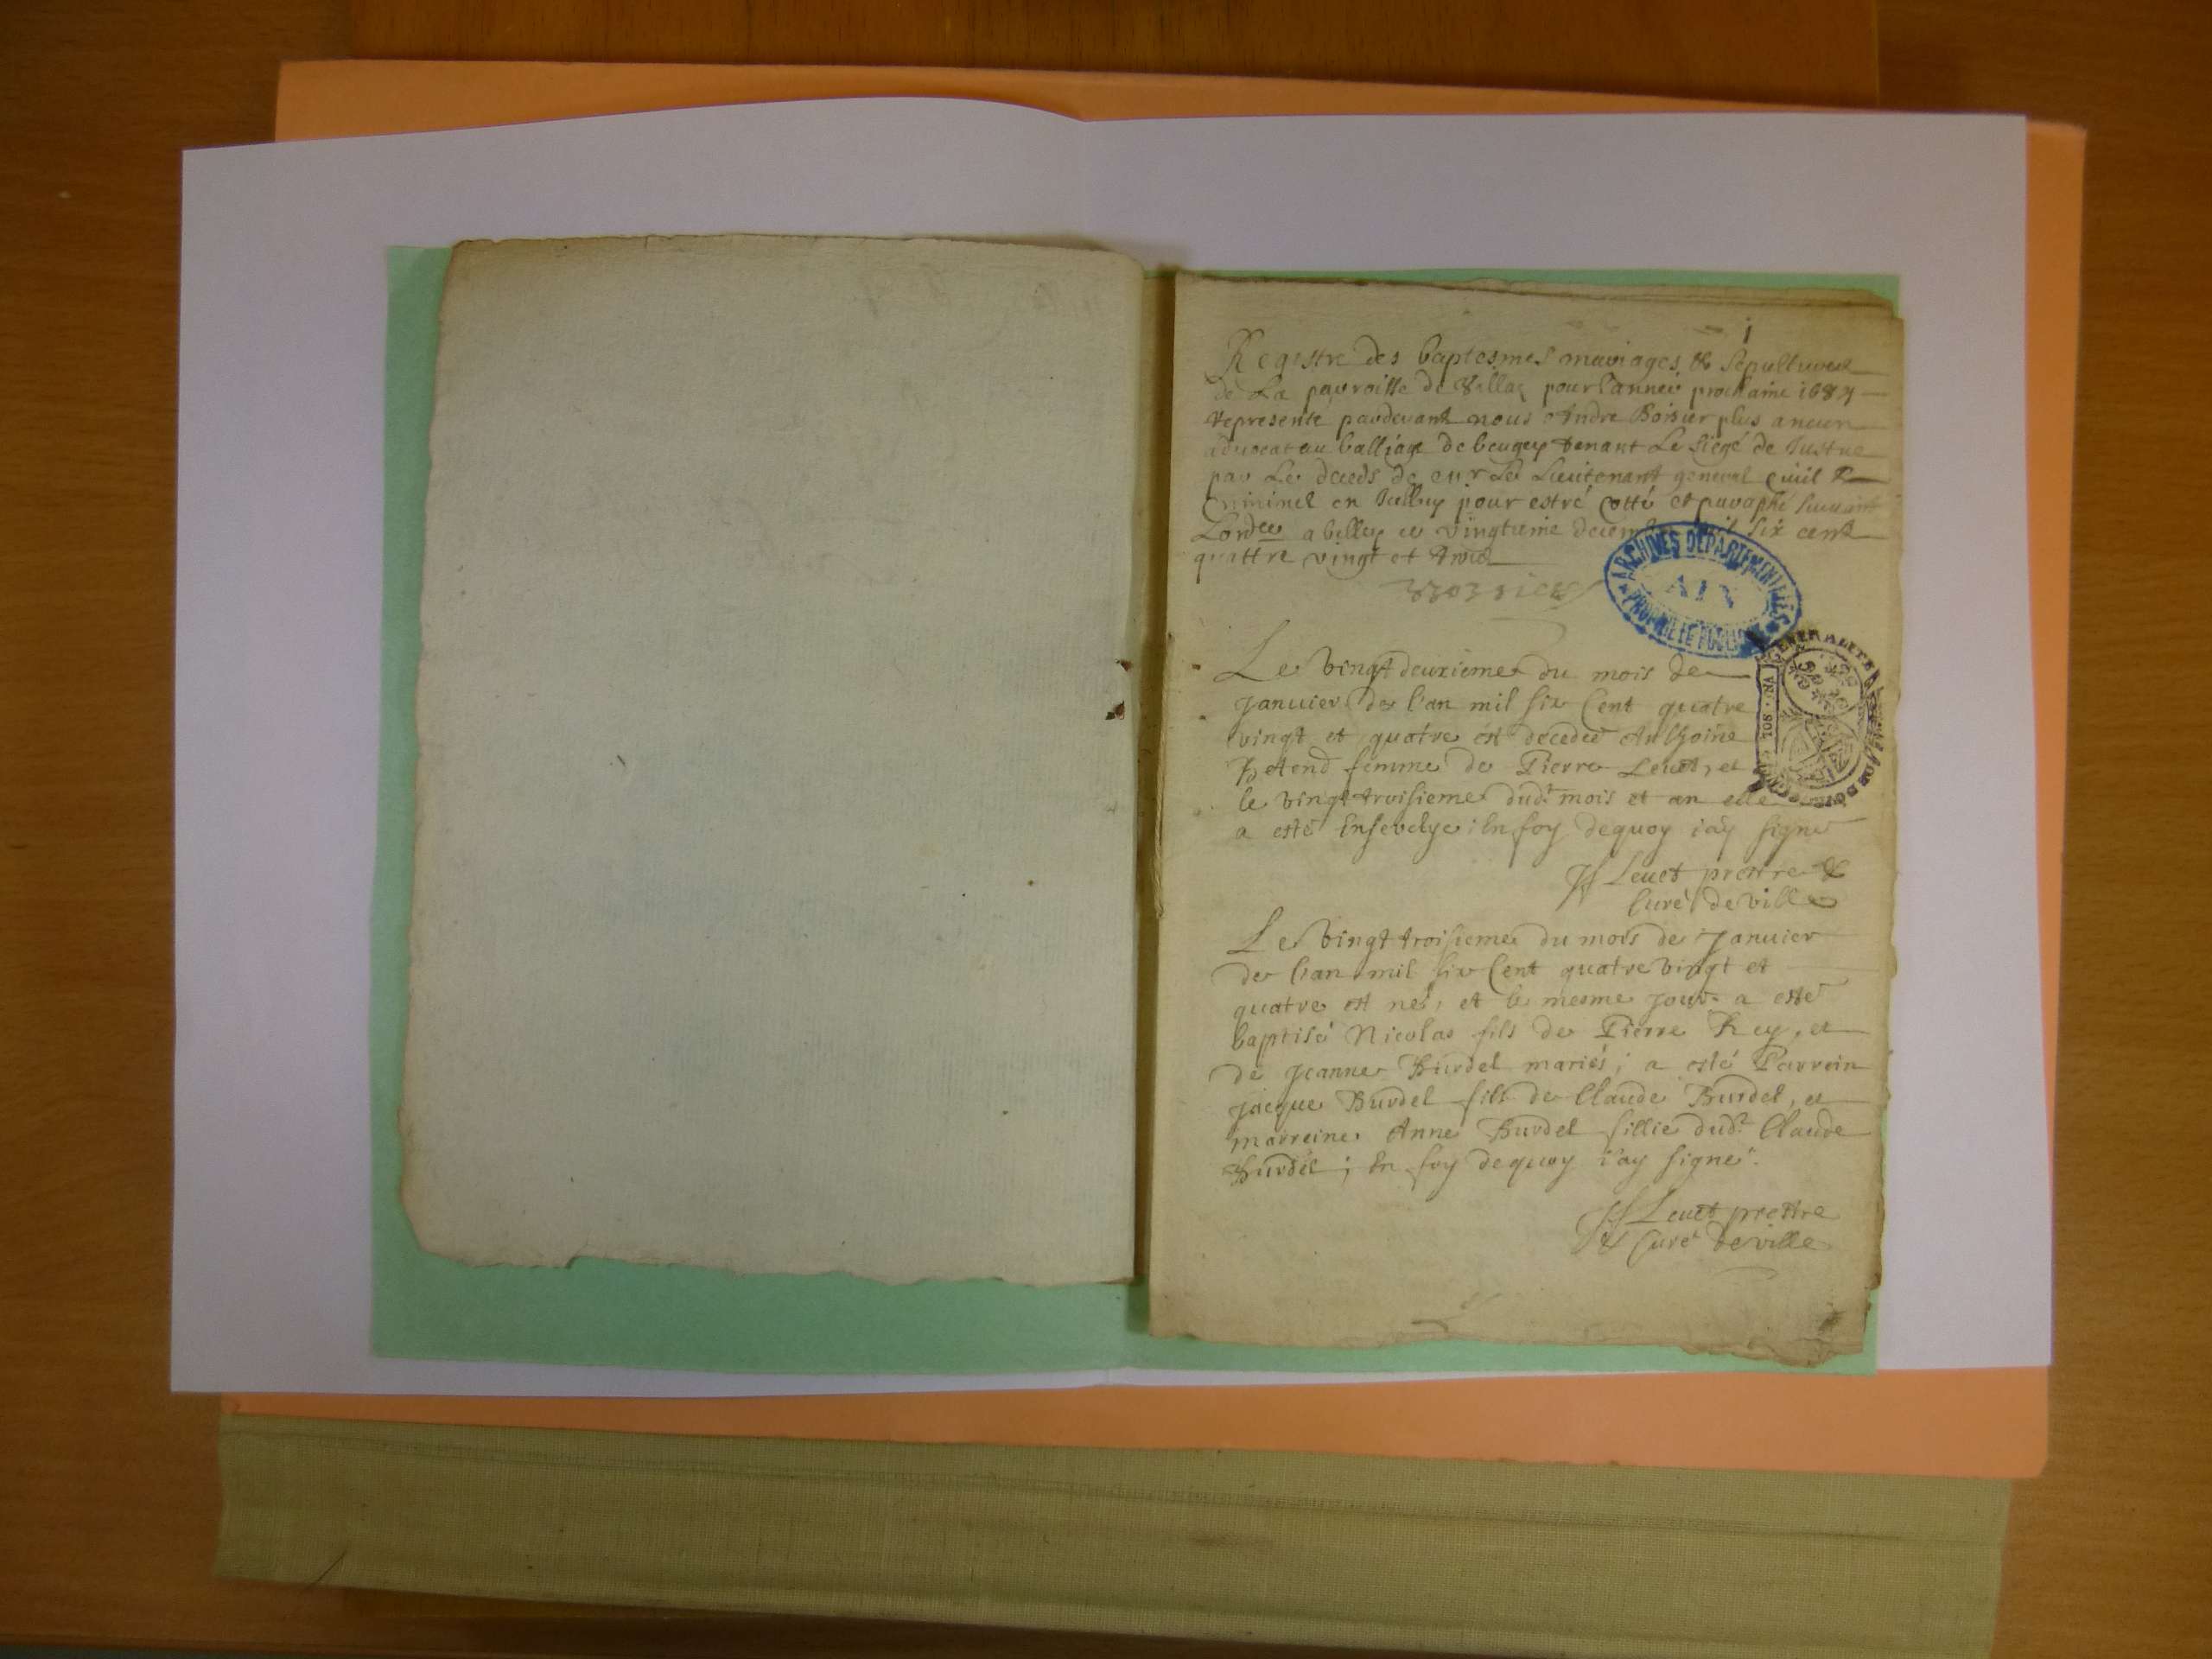 1
Registre des baptesmes mariages & sepultures
de La parroisse de pour l'année prochaine 1684
Represente pardevant nous Andre Boisier plus ancien
advocat au balliage de beugey tenant Le siege de Justice
par Le deceds de Le Lieutenant general civil &
criminel en pour estre cotté et paraphé suivant
Lordce a belley ce vingtieme decem mil six cent
quattre vingt et trois
ARCHIVES DÉPARTEMENTALES
AIN
PROPRIÉTÉ PUBLIQUE
Le vingt deuxieme du mois de
Januier de l'an mil six Cent quatre
vingt et quatre est decedée Anthoine
femme de Pierre Leuet, et
le vingt troisieme dudt mois et an elle
a esté Ensevelye: En foy dequoy i'ay signé
GENERALITE DE
VN SOL
Leuet prettre &
Curé de ville
Le vingt troisieme du mois de Januier
de l'an mil six Cent quatre vingt et
quatre est né, et le mesme jour a esté
baptisé Nicolas fils de Pierre Rey, et
de Jeanne Burdel mariés; a esté Parrein
Jacque Burdel fils de Claude Burdel, et
marreine Anne Burdel fillie dudt Claude
Burdel; En foy dequoy i'ay signé.
Leuet prettre
& Curé de ville